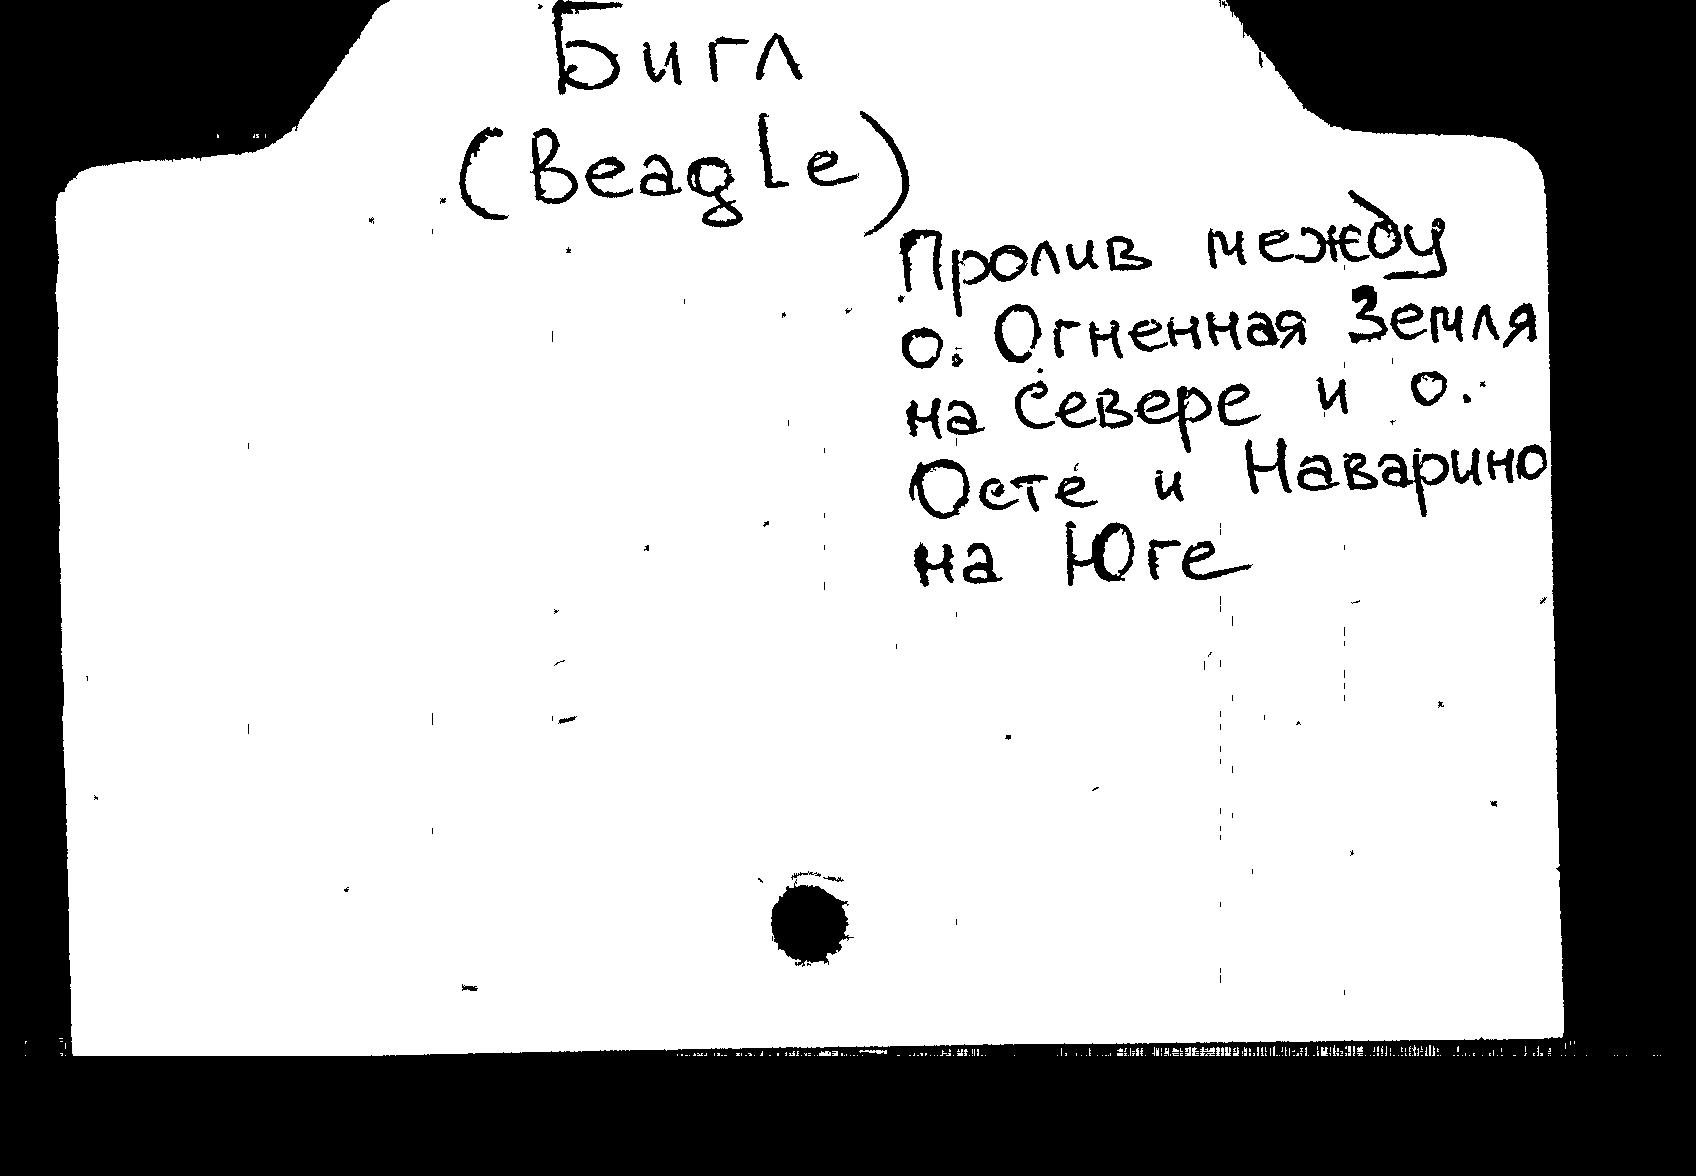 Бигл
(Beagle)
Пролив между
о. Огненная Земля
на Севере и о.
Осте и Наварино
на Юге